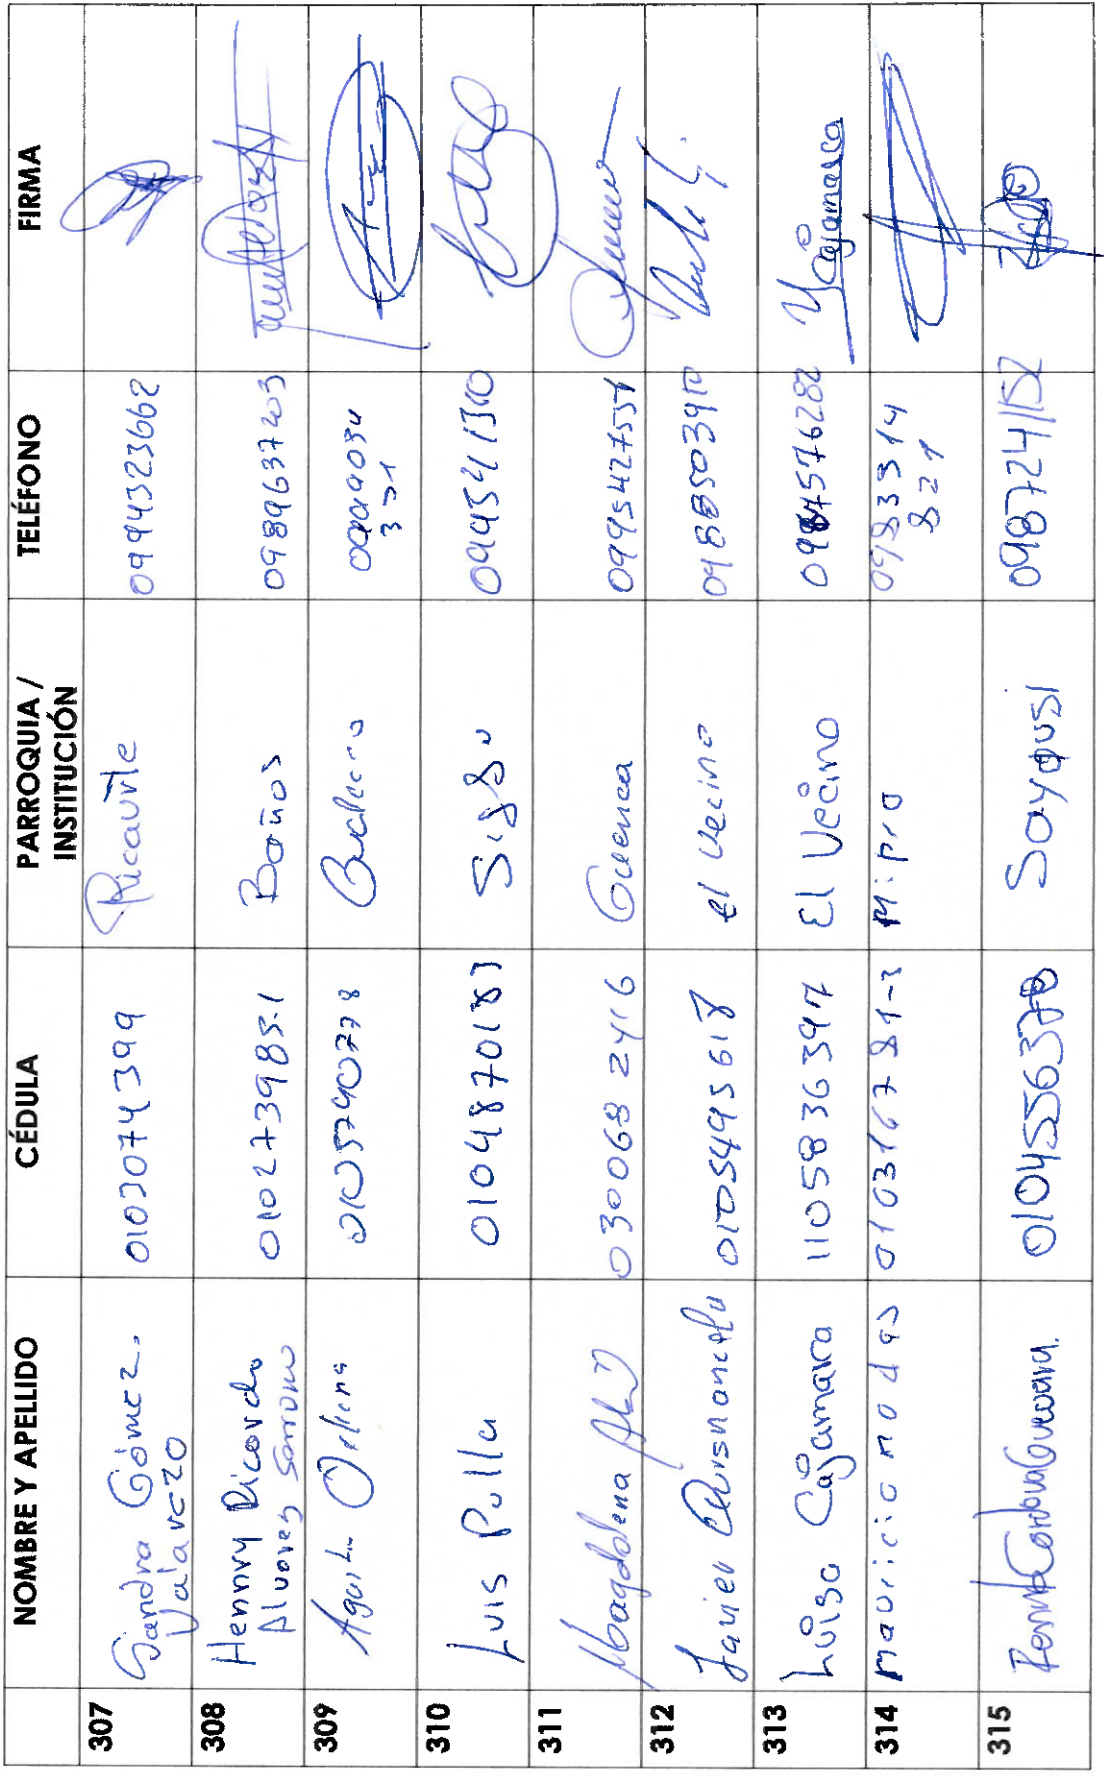 NOMBRE Y APELLIDO CÉDULA PARROQUIA / INSTITUCIÓN TELÉFONO FIRMA
307 Sandra Gómez. 0103074399 Ricaurte 0994323662
308 Hennry Ricardo Alvarez Serrano 010273985-1 Baños 0989637203
309 0105740778
310 Luis Pulla 0104870183 Sigso 0995411310
311 Magdalena 0300682416 Cuenca 0995427551
312 Javier 0105495618 el Vecino 0988503910
313 Luisa Cajamarca 1105836397 El Vecino 0984576282 Cajamarca
314 mauricio modas 010316781-3 Mipro 0983314 821
315 Cordova Guevara. 0104556378 Sayausi 0987241152